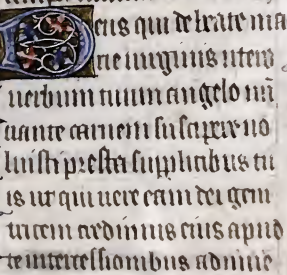 Deus qui de beate ma
rie uirginis utero
uerbum tuum angelo nũ
tiante carnem suscipere uo
luisti presta supplicibus tu
is ut qui uere eam dei geni
tricem credimus eius apud
te intercessionibus adiuue